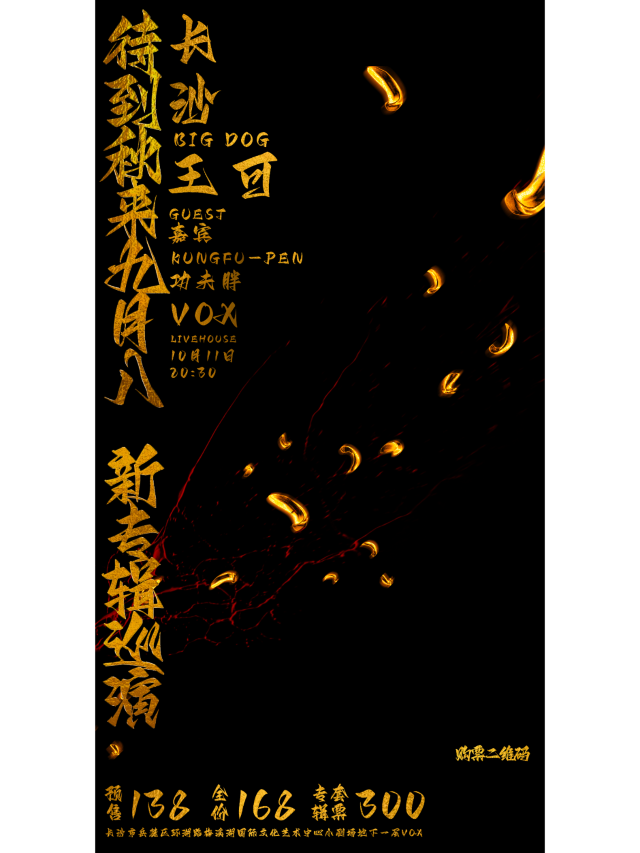 待到秋来九月八
新专辑巡演
长沙
BIG DOG
王可
GUEST
嘉宾
KUNGFU-PEN
功夫胖
VOX
LIVEHOUSE
10月11日
20:30
购票二维码
预售138
全价168
专辑套票300
长沙市岳麓区环湖路梅溪湖国际文化艺术中心小剧场地下一层VOX